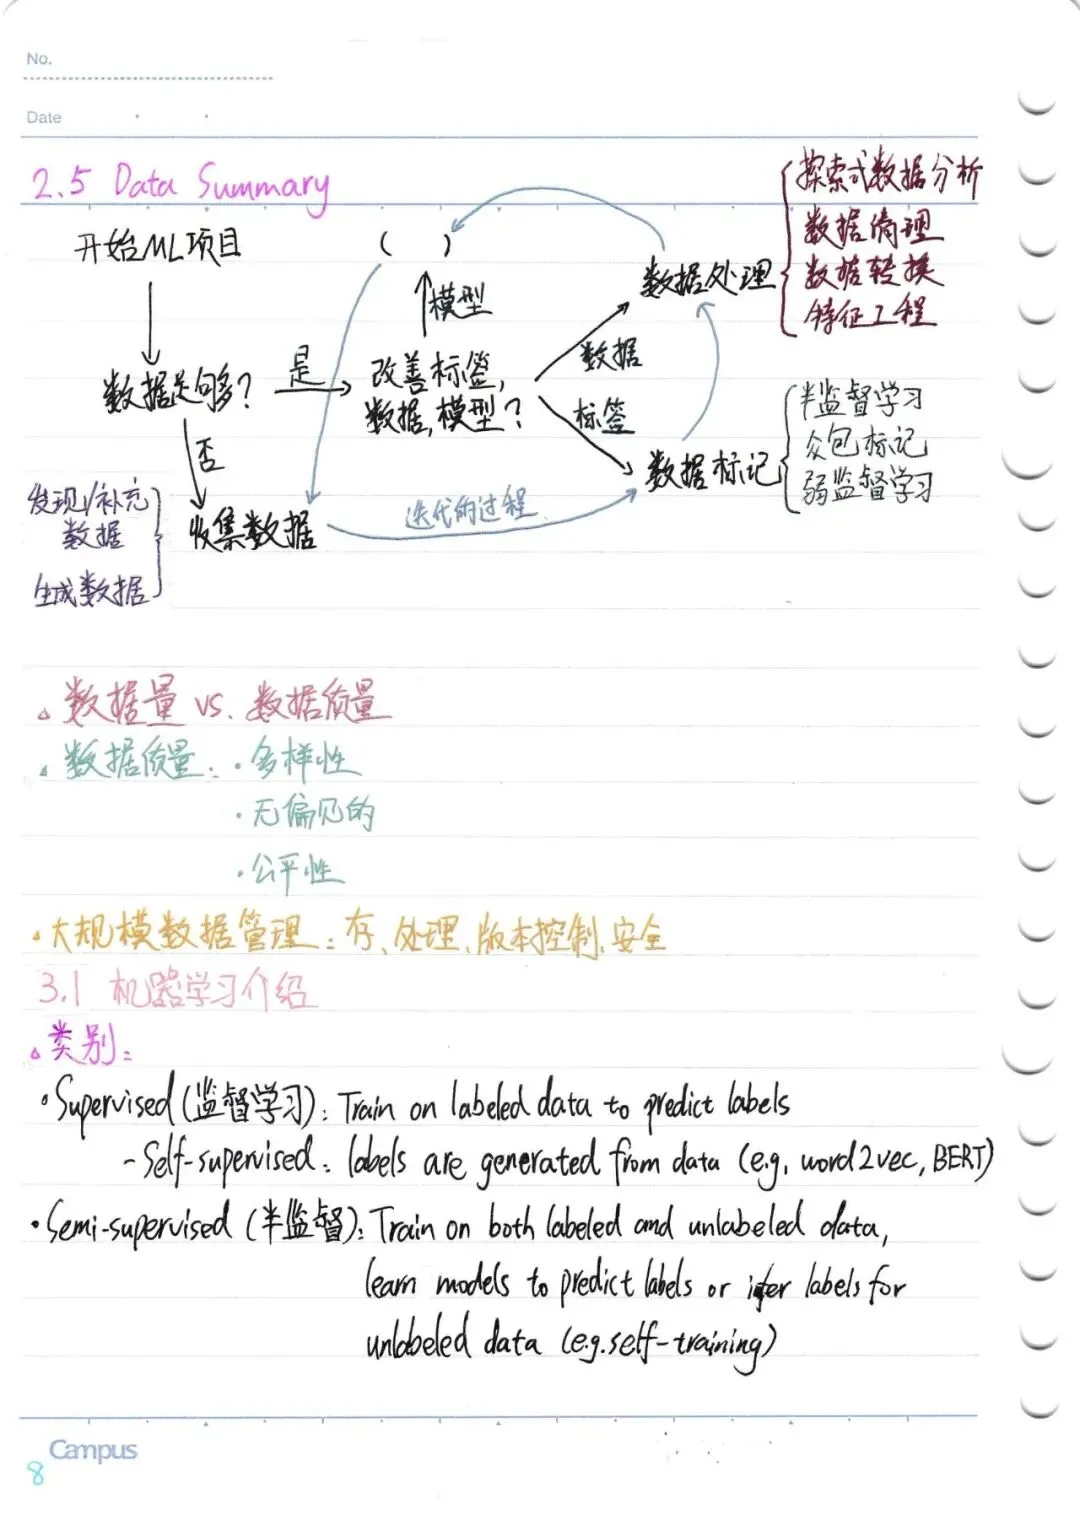 No.
Date
2.5 Data Summary
开始ML项目
( )
模型
数据处理
探索式数据分析
数据清理
数据转换
特征工程
数据足够多?
是
改善标签,
数据,模型?
数据
标签
数据标记
半监督学习
众包标记
弱监督学习
否
发现/补充
数据
生成数据
收集数据
迭代的过程
数据量 vs. 数据质量
数据质量: · 多样性
· 无偏见的
· 公平性
· 大规模数据管理: 存、处理、版本控制、安全
3.1 机器学习介绍
类别:
· Supervised (监督学习): Train on labeled data to predict labels
- Self-supervised: labels are generated from data (e.g. word2vec, BERT)
· Semi-supervised (半监督): Train on both labeled and unlabeled data,
learn models to predict labels or infer labels for
unlabeled data (e.g. self-training)
Campus
8